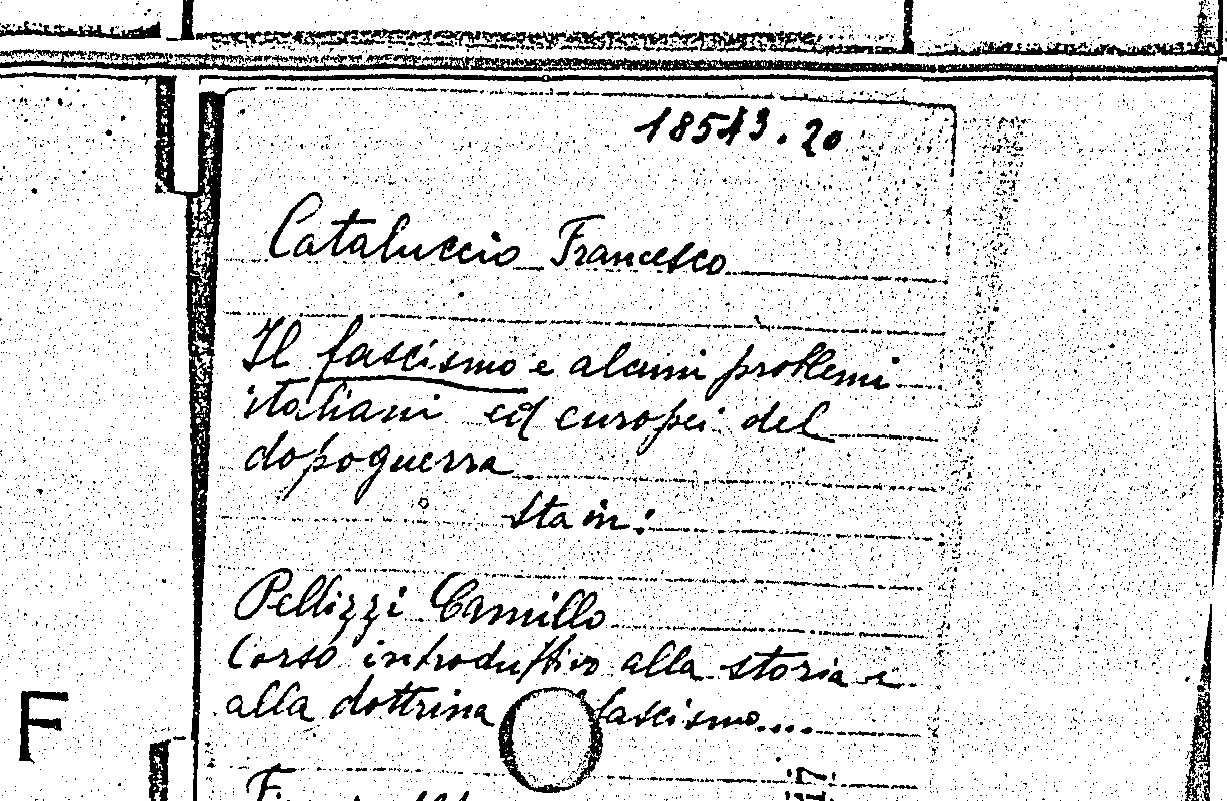 18543.20
Cataluccio Francesco
Il fascismo e alcuni problemi
italiani ed europei del
dopoguerra
sta in:
Pellizzi Camillo
Corso introduttivo alla storia e
alla dottrina fascismo...
F